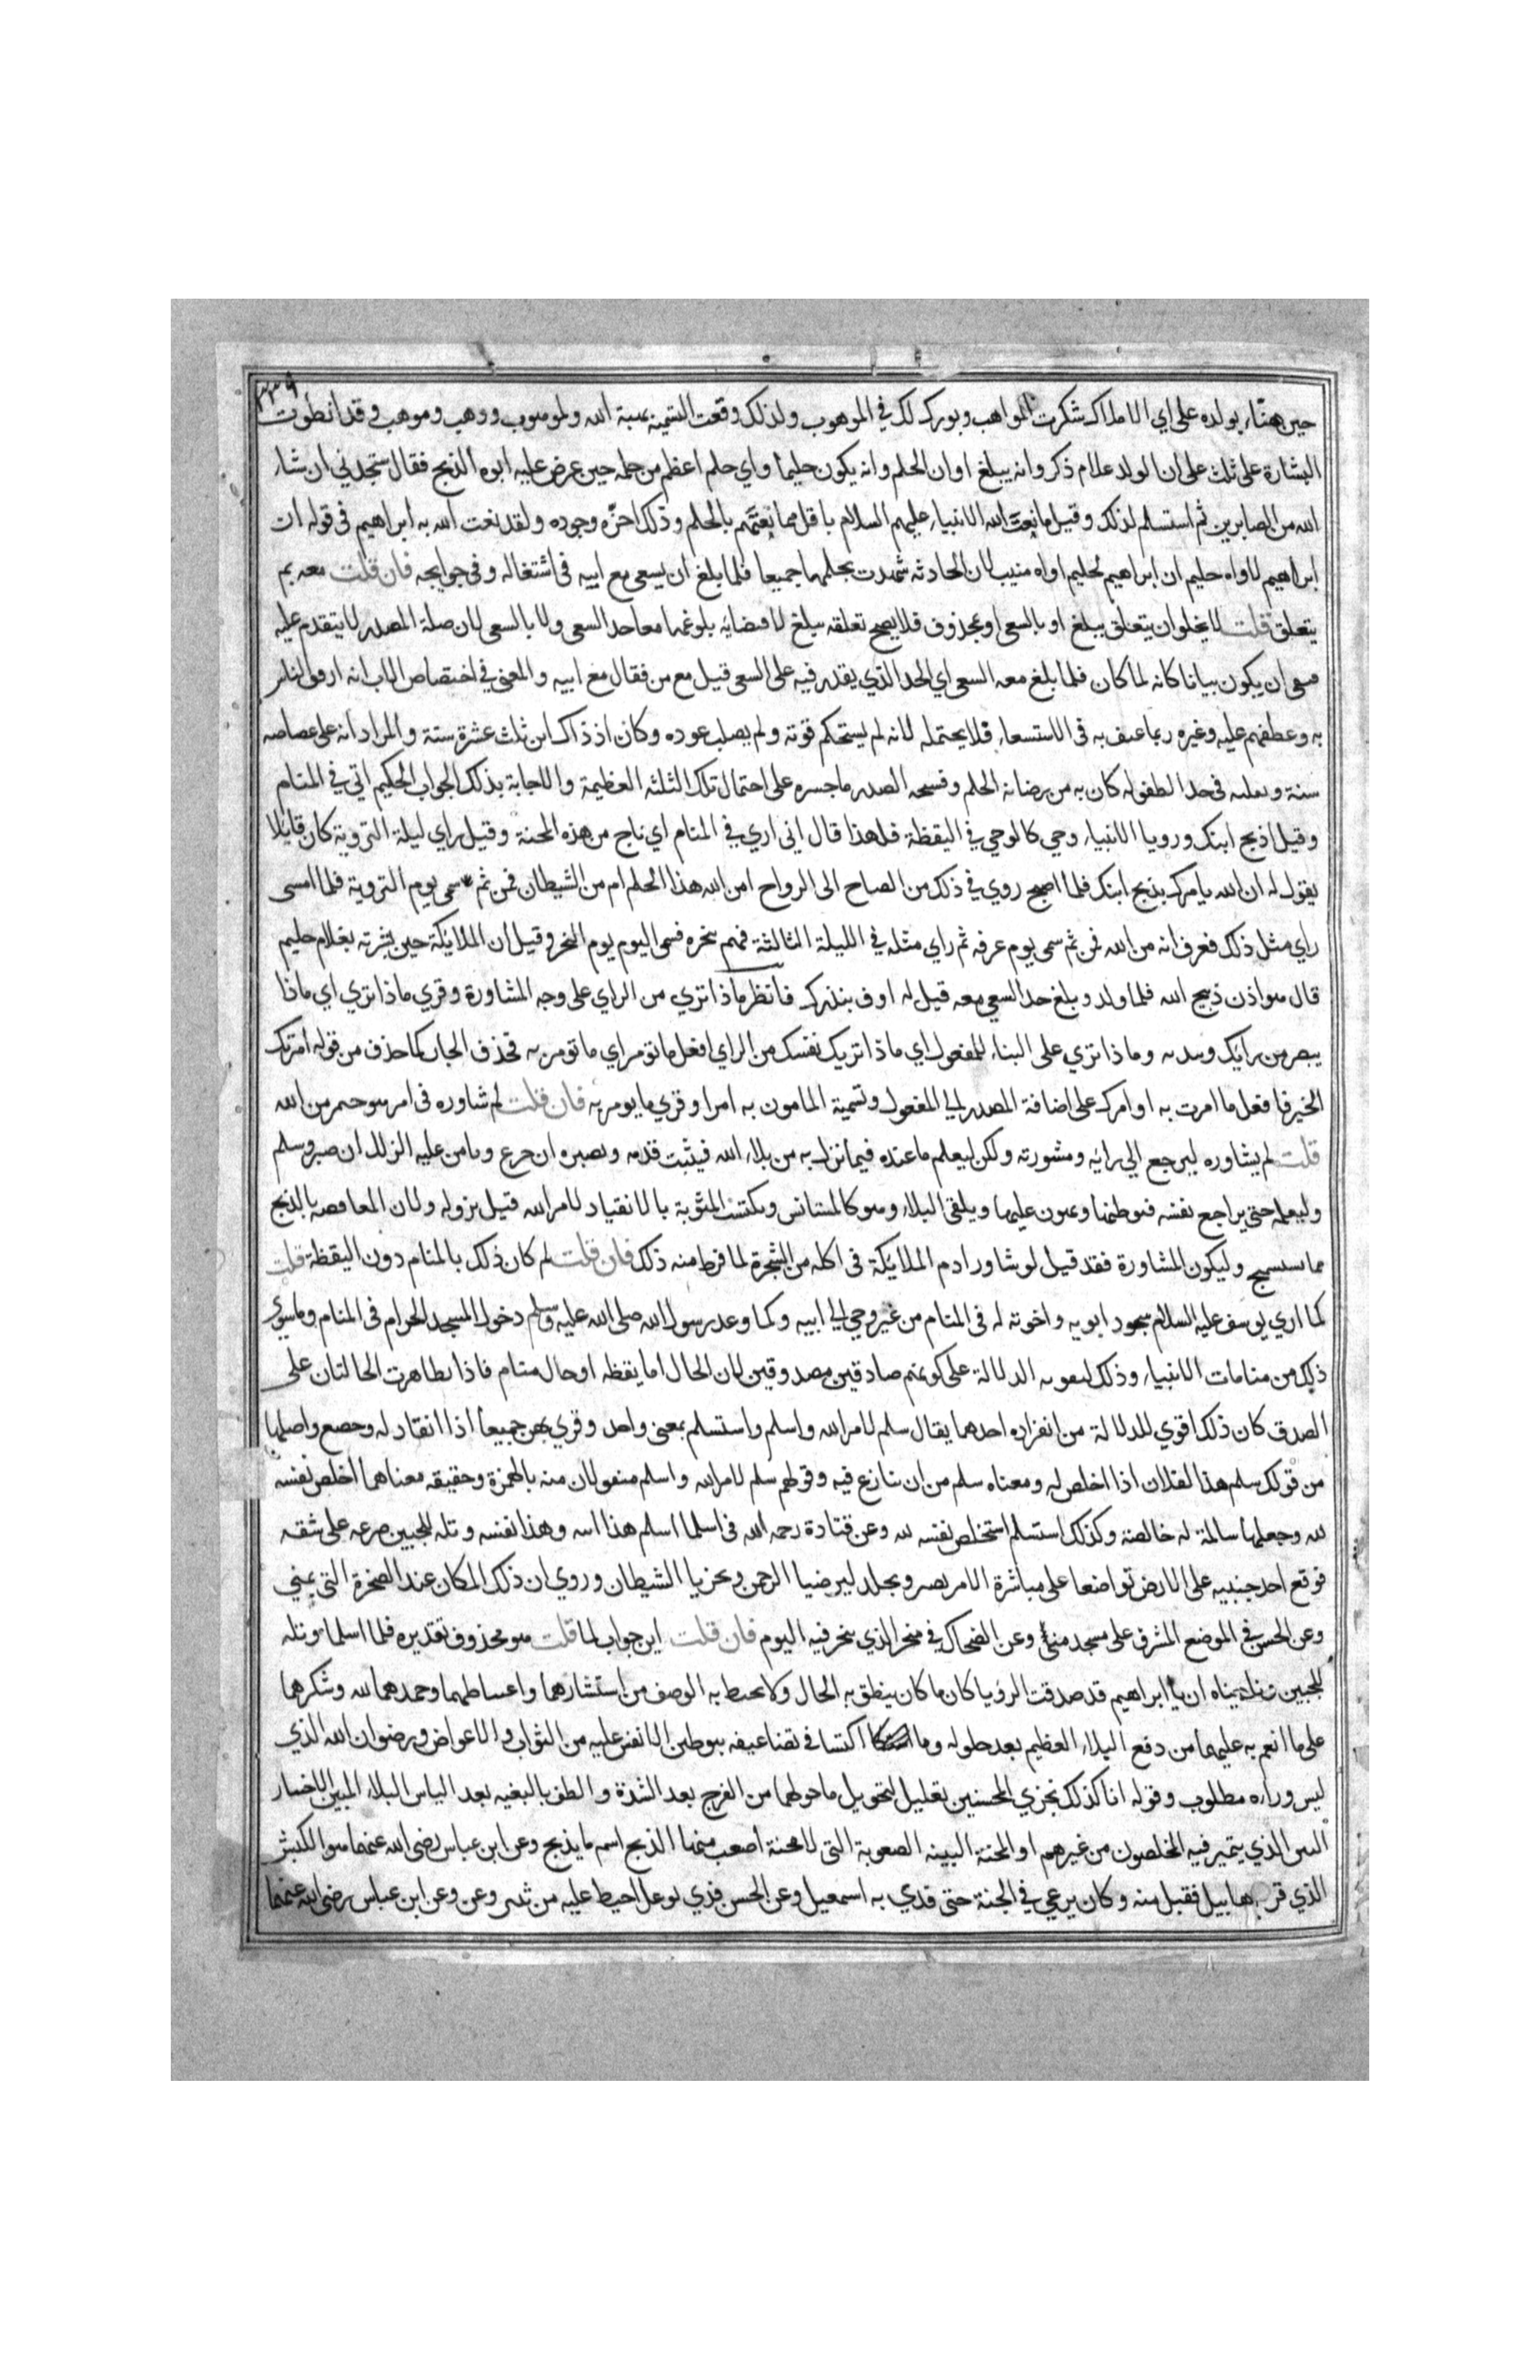 ٣٣٩
حين هنّاه بولده على ابي الاملاك شكرت الواهب وبورك لك في الموهوب ولذلك وقعت التسمية بهبة الله ولموهوب ووهب وموهب وقد انطوت
البشارة على ثلث على ان الولد غلام ذكر وانه يبلغ اوان الحلم وانه يكون حليما واي حلم اعظم من حلمه حين عرض عليه ابوه الذبح فقال ستجدني ان شاء
الله من الصابرين ثم استسلم لذلك وقيل ما نعت الله الانبياء عليهم السلام باقل مما نعتهم بالحلم وذلك لعزّة وجوده ولقد نعت الله به ابراهيم في قوله ان
ابراهيم لاواه حليم ان ابراهيم لحليم اواه منيب لان الحادثه شهدت بحلمهما جميعا فلما بلغ ان يسعى مع ابيه في اشتغاله وفي حوايجه فان قلت معه بم
يتعلق قلت لا يخلو ان يتعلق ببلغ او بالسعي او بمحذوف فلا يصح تعلقه ببلغ لاقتضايه بلوغهما معا حد السعي ولا بالسعي لان صلة المصدر لا يتقدم عليه
فبقي ان يكون بيانا كانه لما كان فلما بلغ معه السعي اي الحد الذي يقدر فيه على السعي قيل مع من فقال مع ابيه والمعنى في اختصاص الاب انه ارفق الناس
به وعطفهم عليه وغيره ربما عنف به في الاستسعاء فلا يحتمله لانه لم يستحكم قوته ولم يصلب عوده وكان اذ ذاك ابن ثلث عشرة سنة والمراد انه على غضاضه
سنة وتقلبه في حد الطفوله كان به من رصانة الحلم وفسحه الصدر ما جسره على احتمال تلك الثلثه العظيمة والاجابة بذلك الجواب الحكيم اتي في المنام
وقيل اذبح ابنك ورويا الانبياء وحي كالوحي في اليقظة فلهذا قال اني اري في المنام اي ناج من هذه المحنة وقيل راي ليلة التروية كان قايلا
يقول له ان الله يامرك بذبح ابنك فلما اصبح روي في ذلك من الصباح الى الرواح امن الله هذا الحلم ام من الشيطان فمن ثم سمى يوم التروية فلما امسى
راي مثل ذلك فعرف انه من الله فمن ثم سمى يوم عرفه ثم راي مثله في الليلة الثالثة فهم بنحره فسمى اليوم يوم النحر وقيل ان الملايكة حين بشرته بغلام حليم
قال هو اذن ذبيح الله فلما ولد وبلغ حد السعي معه قيل له اوف بنذرك فانظر ماذا تري من الراي على وجه المشاورة وقري ماذا تري اي ماذا
يبصر من رايك وتبديه وماذا تري على البناء للمفعول اي ماذا تريك نفسك من الراي افعل ما تومر اي ما تومر به فحذف الجار كما حذف من قوله امرتك
الخير فافعل ما امرت به او امرك على اضافة المصدر الى المفعول وتسمية المامور به امرا وقري ما يومر به فان قلت لم شاوره في امر هو حتم من الله
قلت لم يشاوره ليرجع الى رايه ومشورته ولكن ليعلم ما عنده فيما نزل به من بلاء الله فيثبت قدمه ويصبره ان جزع ويامن عليه الزلل ان صبر وسلم
وليعلمه حتى يراجع نفسه فيوطنها ويهون عليها ويلقى البلاء وهو كالمستانس ويكتسب المثوبة بالانقياد لامر الله قبل نزوله ولان المعافصه بالذبح
مما يستسمج وليكون المشاورة فقد قيل لو شاور ادم الملايكة في اكله من الشجرة لما فرط منه ذلك فان قلت لم كان ذلك بالمنام دون اليقظة قلت
كما اري يوسف عليه السلام سجود ابويه واخوته له في المنام من غير وحي الى ابيه وكما وعد رسول الله صلى الله عليه وسلم دخول المسجد الحرام في المنام وما سوي
ذلك من منامات الانبياء وذلك لتقويه الدلالة على كونهم صادقين مصدوقين لان الحال اما يقظه او حال منام فاذا تظاهرت الحالتان على
الصدق كان ذلك اقوي للدلالة من انفراده احدهما يقال سلم لامر الله واسلم واستسلم بمعنى واحد وقري بهن جميعا اذا انقاد له وخضع واصلها
من قولك سلم هذا لفلان اذا اخلص له ومعناه سلم من ان ينازع فيه وقولهم سلم لامر الله واسلم منقولان منه بالهمزة وحقيقه معناهما اخلص نفسه
لله وجعلها سالمة له خالصة وكذلك استسلم استخلص نفسه لله وعن قتادة رحمه الله في اسلما اسلم هذا ابنه وهذا نفسه وتله للجبين صرعه على شقه
فوقع احد جنبيه على الارض تواضعا على مباشرة الامر بصبر وجلد ليرضيا الرحمن ويخزيا الشيطان وروي ان ذلك المكان عند الصخرة التي بمني
وعن الحسن في الموضع المشرف على مسجد منى وعن الضحاك في منحر الذي ينحر فيه اليوم فان قلت اين جواب لما قلت هو محذوف تقديره فلما اسلما وتله
للجبين وناديناه ان يا ابراهيم قد صدقت الرؤيا كان ما كان ينطق به الحال ولا يحيط به الوصف من استبشارهما واغتباطهما وحمدهما لله وشكرهما
على ما انعم به عليهما من دفع البلاء العظيم بعد حلوله وما اكتسبا في تضاعيفه بتوطين الانفس عليه من الثواب والاعواض ورضوان الله الذي
ليس وراءه مطلوب وقوله انا كذلك نجزي المحسنين تعليل لتحويل ما حولهما من الفرج بعد الشدة والظفر بالبغيه بعد الياس البلاء المبين الاختبار
البين الذي يتميز فيه المخلصون من غيرهم او المحنة البينه الصعوبة التي لا محنة اصعب منها الذبح اسم ما يذبح وعن ابن عباس رضى الله عنهما هو الكبش
الذي قربه هابيل فقبل منه وكان يرعي في الجنة حتى فدي به اسمعيل وعن الحسن فذي بوعل اهبط عليه من ثبير وعن وعن ابن عباس رضى الله عنهما